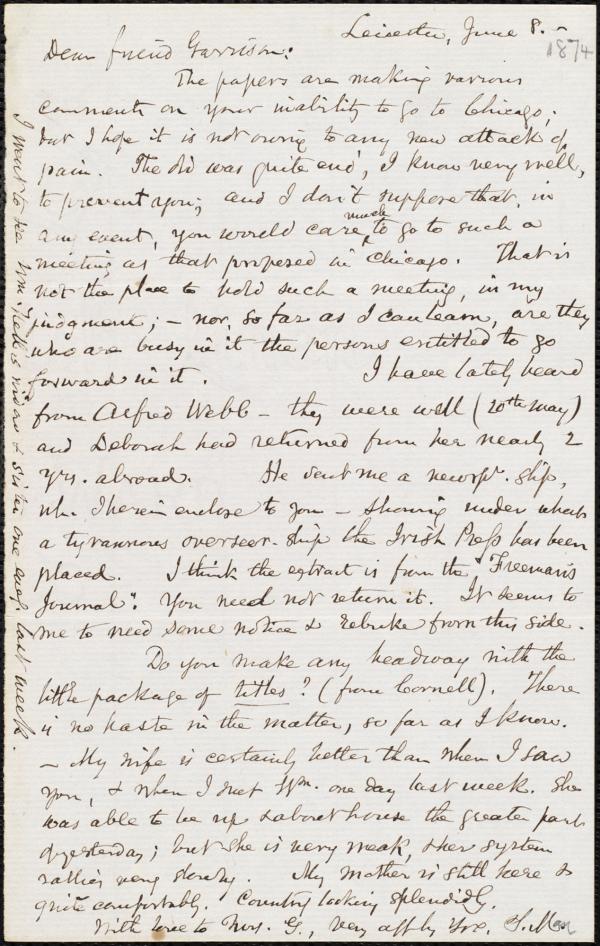 Leicester, June 8. -
1874
Dear friend Garrison:
The papers are making various
comments on your inability to go to Chicago;
but I hope it is not owing to any new attack of
pain. The old was quite eno', I know very well,
to prevent you; and I don't suppose that, in
any event, you would care much to go to such a
meeting as that proposed in Chicago. That is
not the place to hold such a meeting, in my
judgment; - nor, so far as I can learn, are they
who are busy in it the persons entitled to go
forward in it. I have lately heard
from Alfred Webb - they were well (20th May)
and Deborah had returned from her nearly 2
yrs. abroad. He sent me a newspr. slip,
wh. I herein enclose to you - showing under what
a tyrannous overseer-ship the Irish Press has been
placed. I think the extract is from the "Freeman's
Journal". You need not return it. It seems to
me to need some notice & rebuke from this side.
Do you make any headway with the
little package of titles? (from Cornell). There
is no haste in the matter, so far as I know.
- My wife is certainly better than when I saw
you, & when I met Wm. one day last week. She
was able to be up & about house the greater part
of yesterday; but she is very weak, & her system
rallies very slowly. My mother is still here &
quite comfortably. Country looking splendidly.
With love to Mrs. G., very affly yrs. S. May
I went to see Wm. widow & sister one eveg. last week.